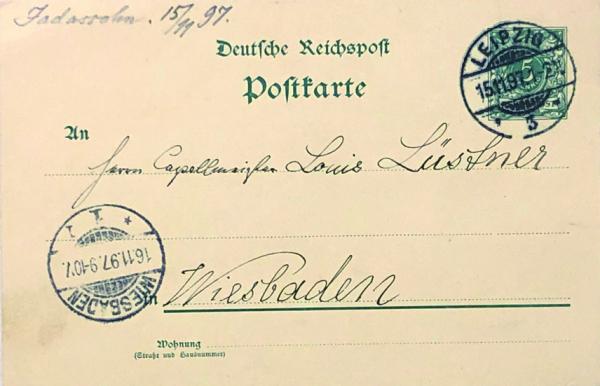 Jadassohn. 15/11 97.
Deutsche Reichspost
Postkarte
LEIPZIG
5
15.11.97
3
An
Herrn Capellmeister Louis Lüstner
1
16.11.97.9-10V.
WIESBADEN
in Wiesbaden
Wohnung
(Straße und Hausnummer)